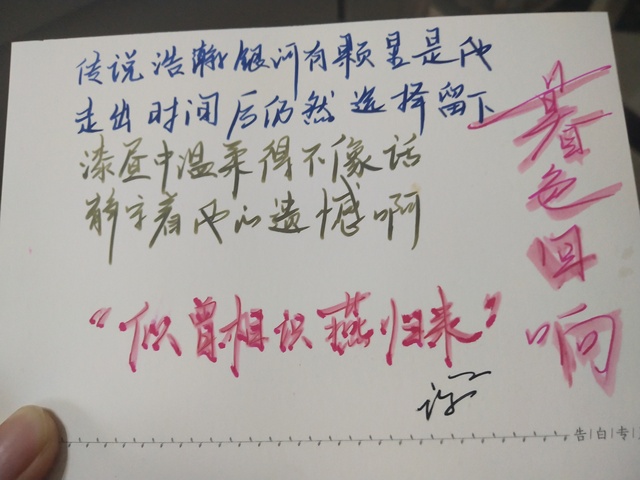 传说浩瀚银河有颗星是他
走出时间后仍然选择留下
漆昼中温柔得不像话
静守着他的遗憾啊
“似曾相识燕归来”
暮色回响
告|白|专